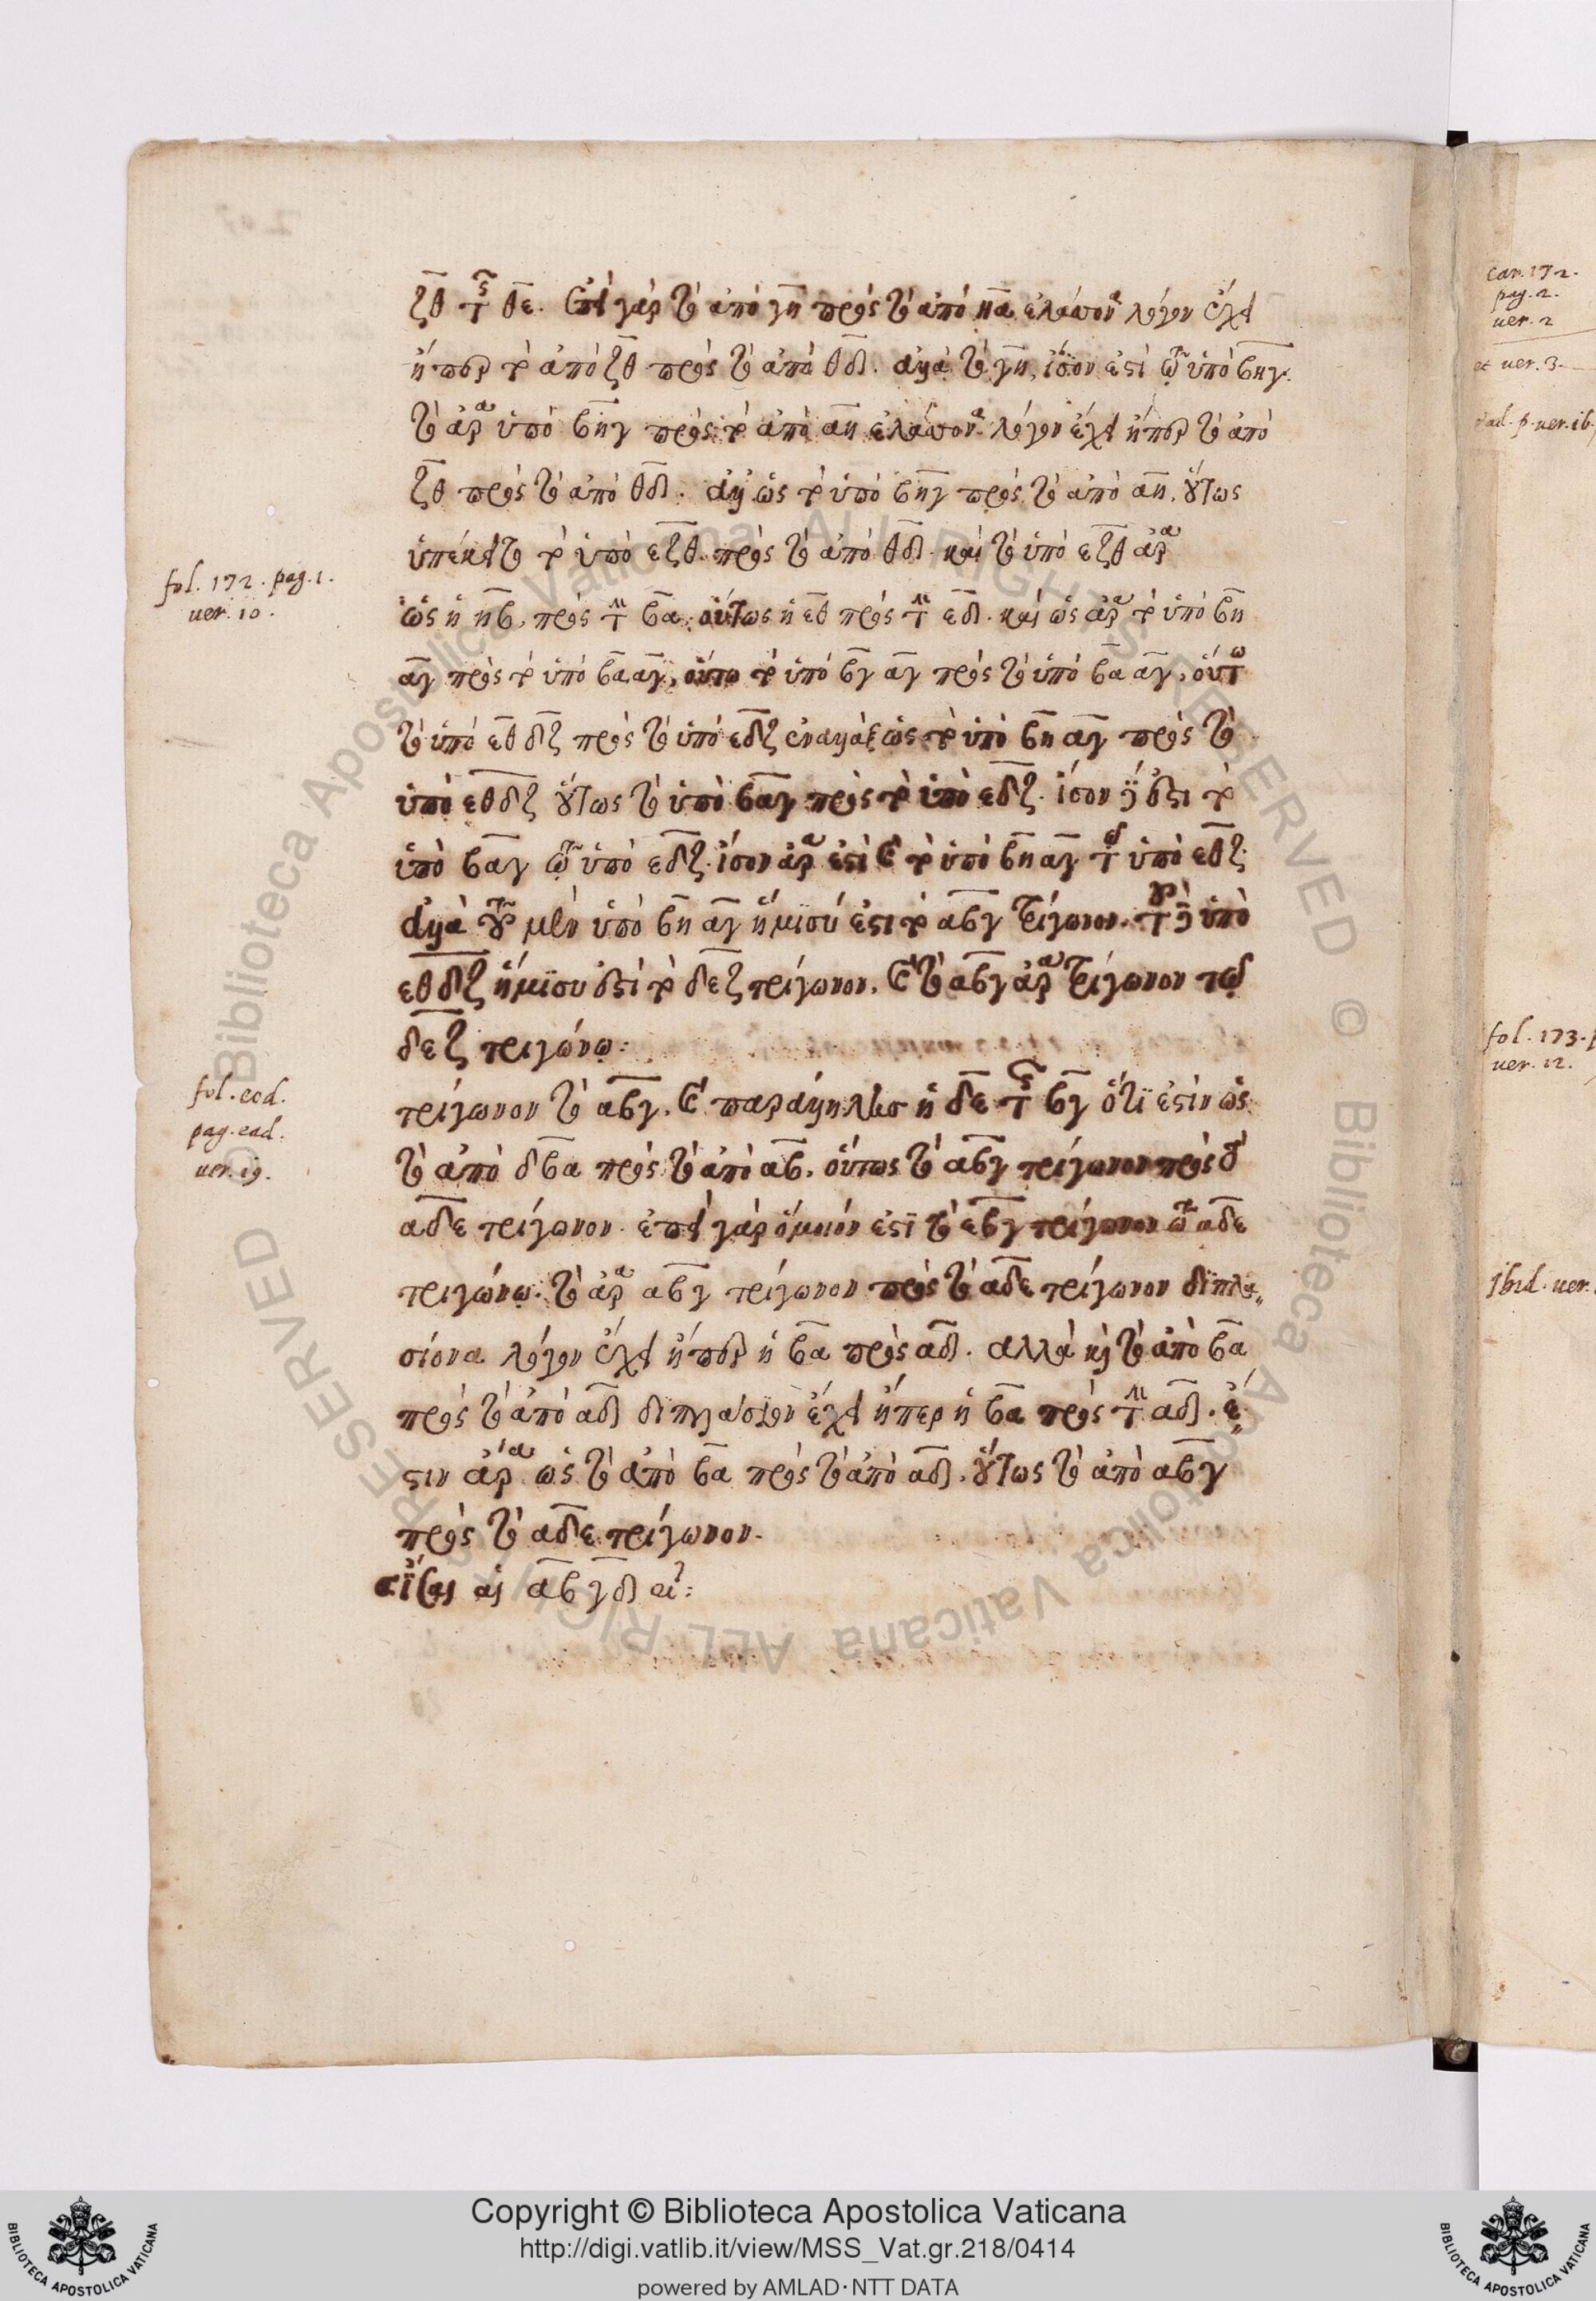 ζθ τῆς θε. ἐπεὶ γὰρ τὸ ἀπὸ γη πρὸς τὸ ἀπὸ ηα ἐλάττονα λόγον ἔχει
ἤπερ τὸ ἀπὸ ζθ πρὸς τὸ ἀπὸ θδ. ἀλλὰ τὸ γη, ἴσον ἐστὶ τῶ ὑπὸ βηγ.
τὸ ἄρα ὑπὸ βηγ πρὸς τὸ ἀπὸ αη ἐλάττονα λόγον ἔχει ἤπερ τὸ ἀπὸ
ζθ πρὸς τὸ ἀπὸ θδ. ἀλλ' ὡς τὸ ὑπὸ βηγ πρὸς τὸ ἀπὸ αη, οὕτως
ὑπέκειτο τὸ ὑπὸ εζθ πρὸς τὸ ἀπὸ θδ. καὶ τὸ ὑπὸ εζθ ἄρα
ὡς ἡ ηβ, πρὸς τὴν βα, οὕτως ἡ εθ πρὸς τὴν εδ. καὶ ὡς ἄρα τὸ ὑπὸ βη
αγ πρὸς τὸ ὑπὸ βα αγ, οὕτω τὸ ὑπὸ βγ αγ πρὸς τὸ ὑπὸ βα αγ, οὕτω
τὸ ὑπὸ εθ δζ πρὸς τὸ ὑπὸ εδζ ἐναλλὰξ ὡς τὸ ὑπὸ βη αγ πρὸς τὸ
ὑπὸ εθδζ οὕτως τὸ ὑπὸ βαγ πρὸς τὸ ὑπὸ εδζ. ἴσον δέ ἐστι τὸ
ὑπὸ βαγ τῶ ὑπὸ εδζ. ἴσον ἄρα ἐστὶ καὶ τὸ ὑπὸ βη αγ τῶ ὑπὸ εθζ.
ἀλλὰ τοῦ μὲν ὑπὸ βη αγ ἥμισύ ἐστι τὸ αβγ τρίγωνον. τοῦ δὲ ὑπὸ
εθ δζ ἥμισυ ἐστὶ τὸ δεζ τρίγωνον. καὶ τὸ αβγ ἄρα τρίγωνον τῶ
δεζ τριγώνω:
τρίγωνον τὸ αβγ. καὶ παράλληλος ἡ δε τῆς βγ ὅτι ἐστὶν ὡς
τὸ ἀπὸ δβα πρὸς τὸ ἀπὸ αβ, οὕτως τὸ αβγ τρίγωνον πρὸς τὸ
αδε τρίγωνον. ἐπεὶ γὰρ ὅμοιόν ἐστι τὸ εβγ τρίγωνον τῶ αδε
τριγώνω. τὸ ἄρα αβγ τρίγωνον πρὸς τὸ αδε τρίγωνον διπλα-
σίονα λόγον ἔχει ἤπερ ἡ βα πρὸς αδ. αλλὰ καὶ τὸ ἀπὸ βα
πρὸς τὸ ἀπὸ αδ διπλασίον ἔχει ἤπερ ἡ βα πρὸς τὴν αδ. ἔ-
στιν ἄρα ὡς τὸ ἀπὸ βα πρὸς τὸ ἀπὸ αδ, οὕτως τὸ ἀπὸ αβγ
πρὸς τὸ αδε τρίγωνον.
αἱ αβ γδ αἱ:
fol. 172. pag. 1.
uer. 10.
fol. eod.
pag. ead.
uer. 19.
cav. 172.
pag. 2.
uer. 2
et uer. 3.
fol. 173.
uer. 12.
Ibid. uer.
Copyright © Biblioteca Apostolica Vaticana
http://digi.vatlib.it/view/MSS_Vat.gr.218/0414
powered by AMLAD·NTT DATA
BIBLIOTECA APOSTOLICA VATICANA
BIBLIOTECA APOSTOLICA VATICANA